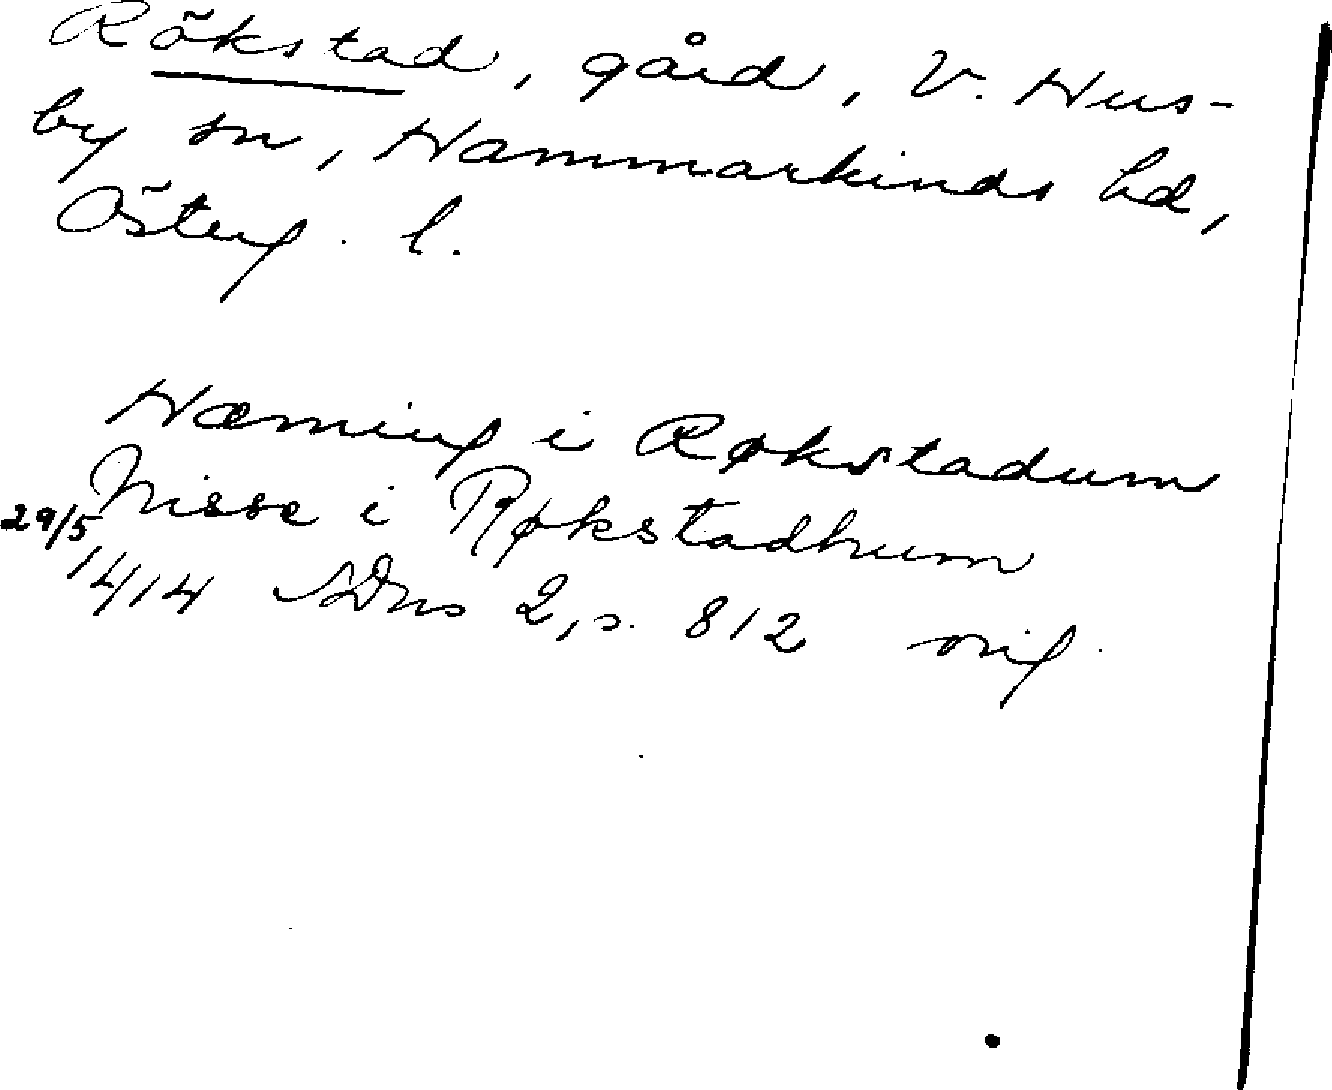 Rökstad, gård, V. Hus-
by sn, Hammarkinds hd,
Österg. l.
Hæming i Røkstadum
Nisse i Røkstadhum
29/5 1414 SDns 2, s. 812 orig.